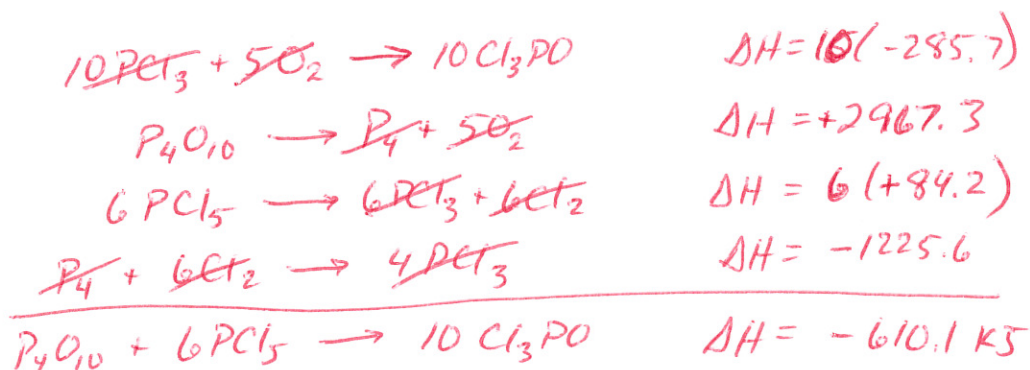 10PCl₃ + 5O₂ → 10Cl₃PO ΔH = 10(-285.7)
P₄O₁₀ → P₄ + 5O₂ ΔH = +2967.3
6PCl₅ → 6PCl₃ + 6Cl₂ ΔH = 6(+84.2)
P₄ + 6Cl₂ → 4PCl₃ ΔH = -1225.6
P₄O₁₀ + 6PCl₅ → 10Cl₃PO ΔH = -610.1 KJ